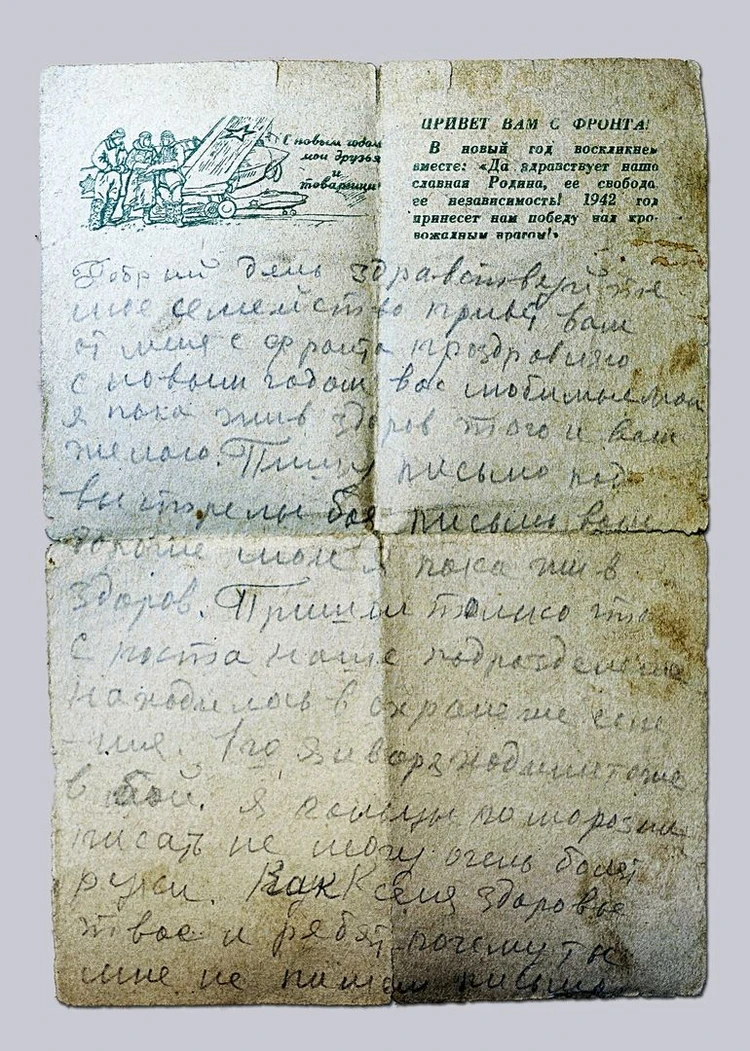 С новым годом
мои друзья
и
товарищи
ПРИВЕТ ВАМ С ФРОНТА!
В новый год воскликнем
вместе: «Да здравствует наша
славная Родина, ее свобода
ее независимость! 1942 год
принесет нам победу над кро-
вожадным врагом!»
Добрый день здравствуйте
мое семейство привет вам
от меня с фронта проздровляю
с новым годом вас любимые мои
я пока жив здоров того и вам
желаю. Пишу письмо под
выстрелы боя письмо вам
пока жив
здоров. Пришли только что
с поста наше подразделение
находилось в охранение
1го января
в бой. я
писать не могу очень болят
руки. Как Ксеня здоровье
твое и рябят почему ты
мне не пишеш письма